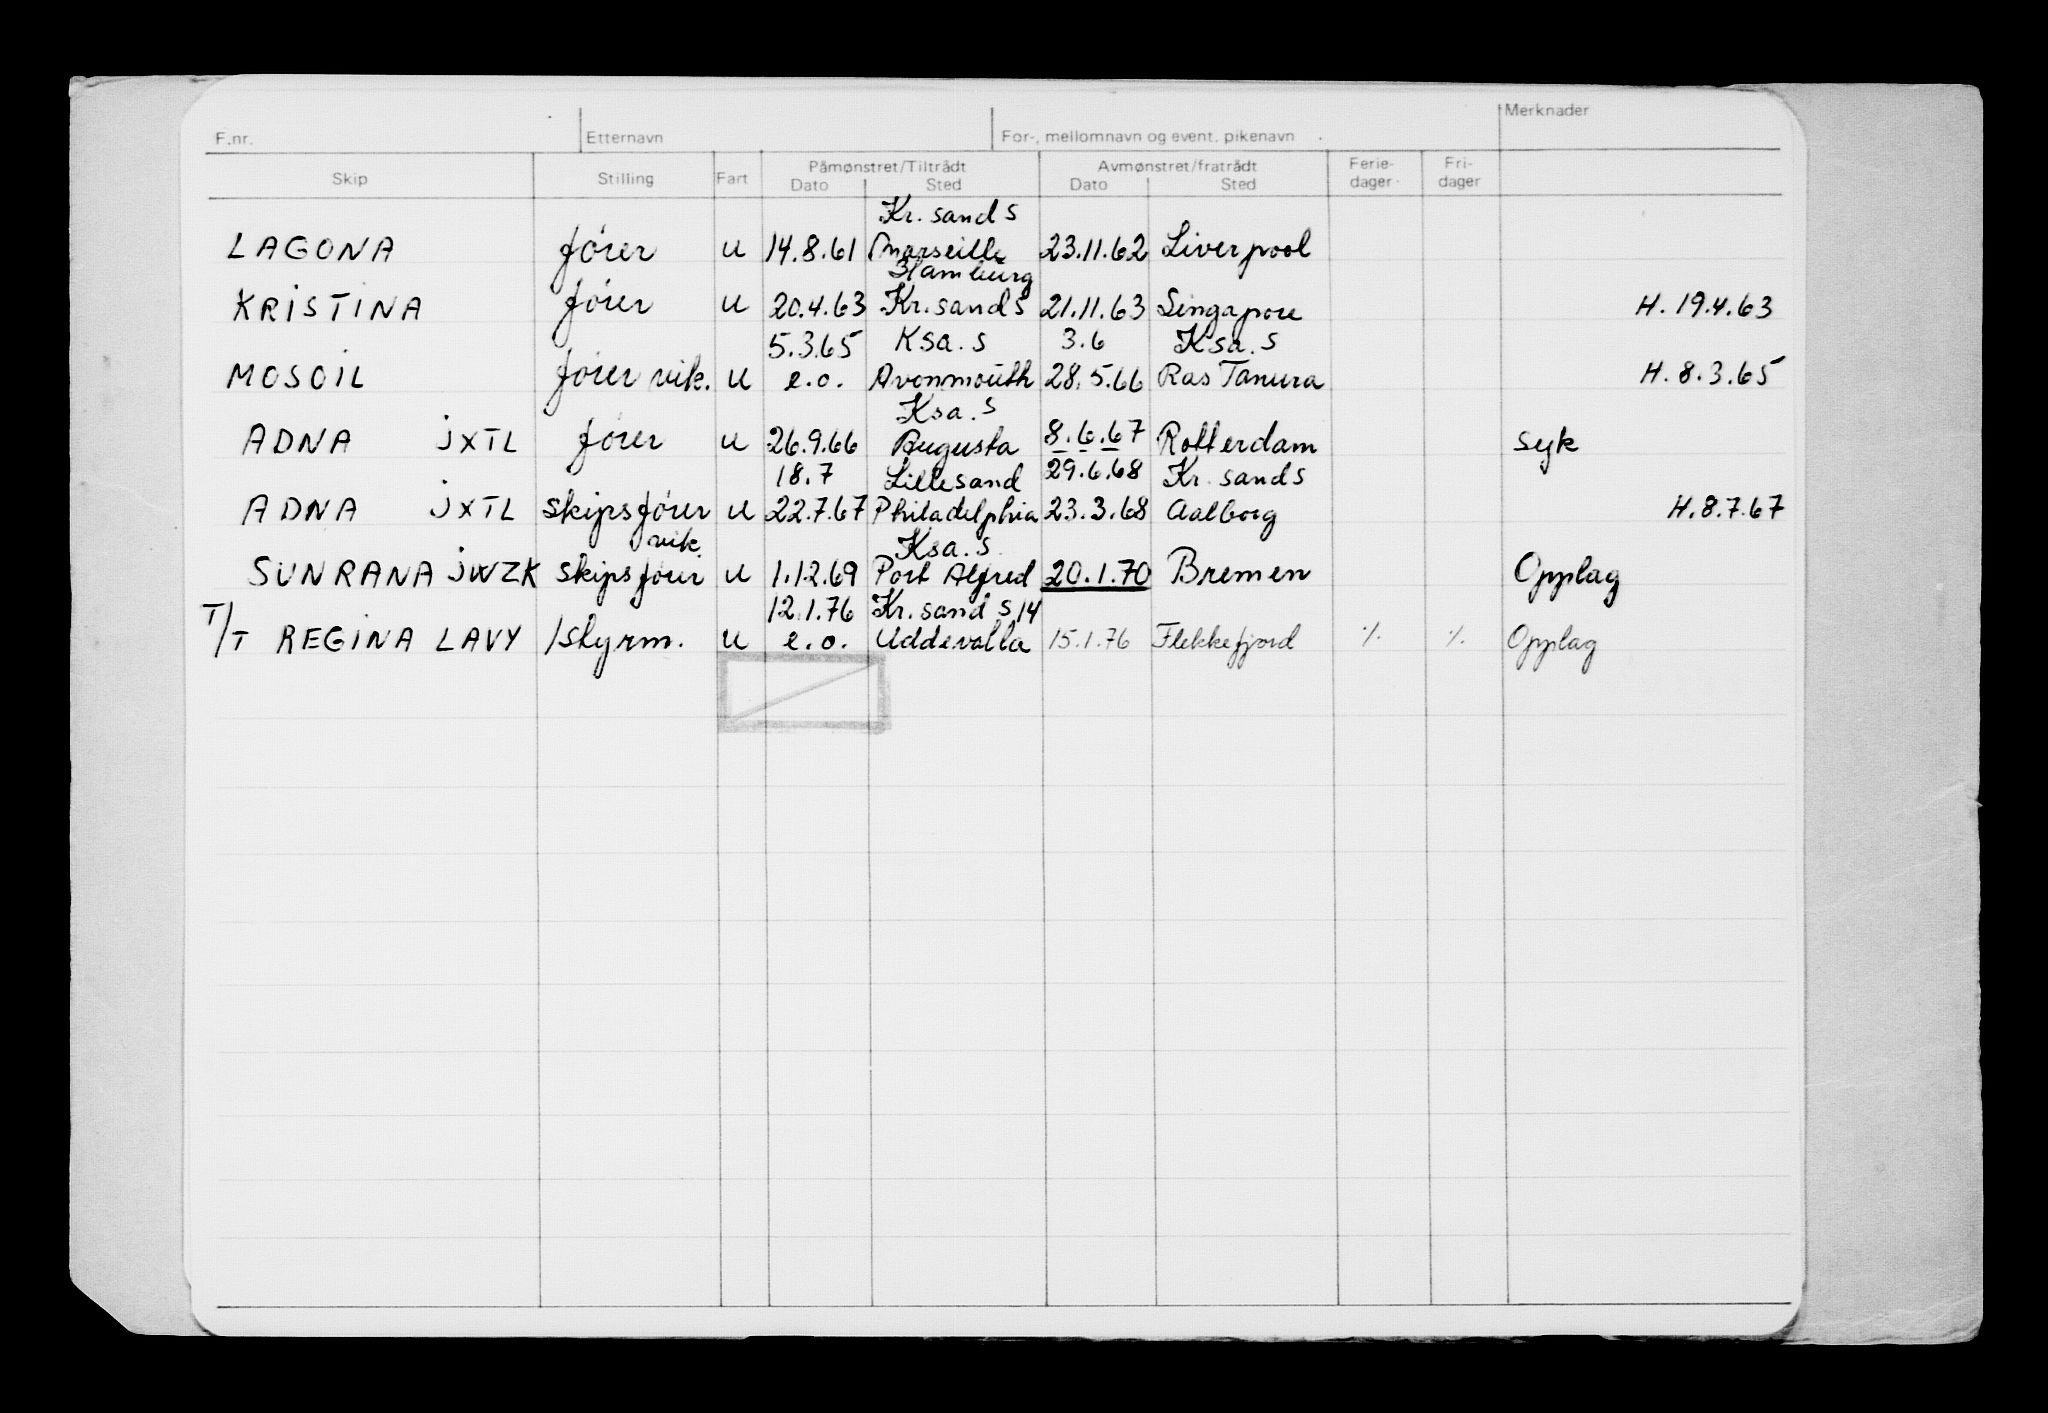 F.nr. Etternavn For-, mellomnavn og event. pikenavn Merknader
Skip Stilling Fart Påmønstret/Tiltrådt Avmønstret/fratrådt Ferie- Fri-
Dato Sted Dato Sted dager dager
Kr. sand S
LAGONA fører u 14.8.61 Marseille 23.11.62 Liverpool
Hamburg
KRISTINA fører u 20.4.63 Kr. sand S 21.11.63 Singapore H. 19.4.63
5.3.65 Ksa. S 3.6 Ksa. S
MOSOIL fører vik. u e.o. Avonmouth 28.5.66 Ras Tanura H. 8.3.65
Ksa. S
ADNA JXTL fører u 26.9.66 Augusta 8.6.67 Rotterdam syk
18.7 Lillesand 29.6.68 Kr. sand S
ADNA JXTL skipsfører u 22.7.67 Philadelphia 23.3.68 Aalborg H. 8.7.67
vik. Ksa. S
SUNRANA JWZK skipsfører u 1.12.69 Port Alfred 20.1.70 Bremen Opplag
12.1.76 Kr. sand S 14
T/T REGINA LAVY 1styrm. u e.o. Uddevalla 15.1.76 Flekkefjord ./. ./. Opplag